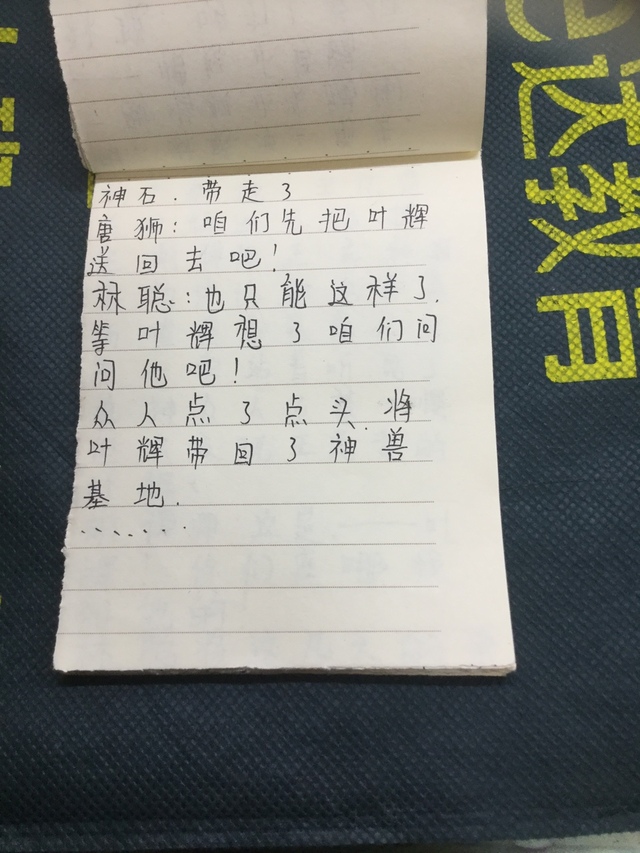 神石.带走了
唐狮:咱们先把叶辉
送回去吧!
林聪:也只能这样了.
等叶辉想了咱们问
问他吧!
众人点了点头.将
叶辉带回了神兽
基地.
.......
达教育